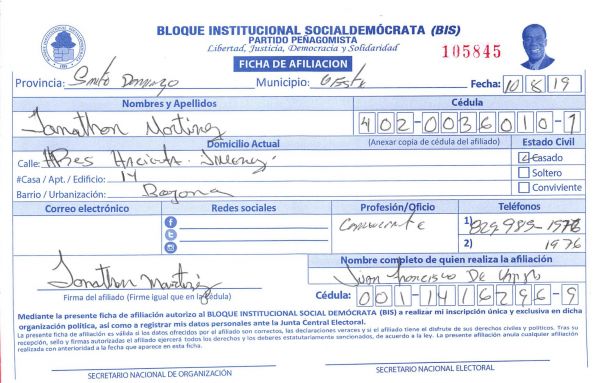 BLOQUE INSTITUCIONAL SOCIALDEMÓCRATA (BIS)
PARTIDO PEÑAGOMISTA
Libertad, Justicia, Democracia y Solidaridad
105845
FICHA DE AFILIACION
Provincia: Santo Domingo Municipio: Oeste Fecha: 10/8/19
Nombres y Apellidos Cédula
Jonathan Martinez 402-0036010-1
Domicilio Actual (Anexar copia de cédula del afiliado) Estado Civil
Calle: Res Hacienda Casado
#Casa / Apt. / Edificio: 14 Soltero
Barrio / Urbanización: Conviviente
Correo electrónico Redes sociales Profesión/Oficio Teléfonos
1) 829-989-1976
2) 1976
Nombre completo de quien realiza la afiliación
Jonathan Martinez Juan Francisco De
Firma del afiliado (Firme igual que en la cédula) Cédula: 001-1416296-9
Mediante la presente ficha de afiliación autorizo al BLOQUE INSTITUCIONAL SOCIAL DEMÓCRATA (BIS) a realizar mi inscripción única y exclusiva en dicha
organización política, así como a registrar mis datos personales ante la Junta Central Electoral.
La presente ficha de afiliación es válida si los datos ofrecidos por el afiliado son correctos, las declaraciones veraces y si el afiliado tiene el disfrute de sus derechos civiles y políticos. Tras su
recepción, sello y firmas autorizadas el afiliado ejercerá todos los derechos y los deberes estatutariamente sancionados, de acuerdo a la ley. La presente afiliación anula cualquier afiliación
realizada con anterioridad a la fecha que aparece en esta ficha.
SECRETARIO NACIONAL DE ORGANIZACIÓN SECRETARIO NACIONAL ELECTORAL